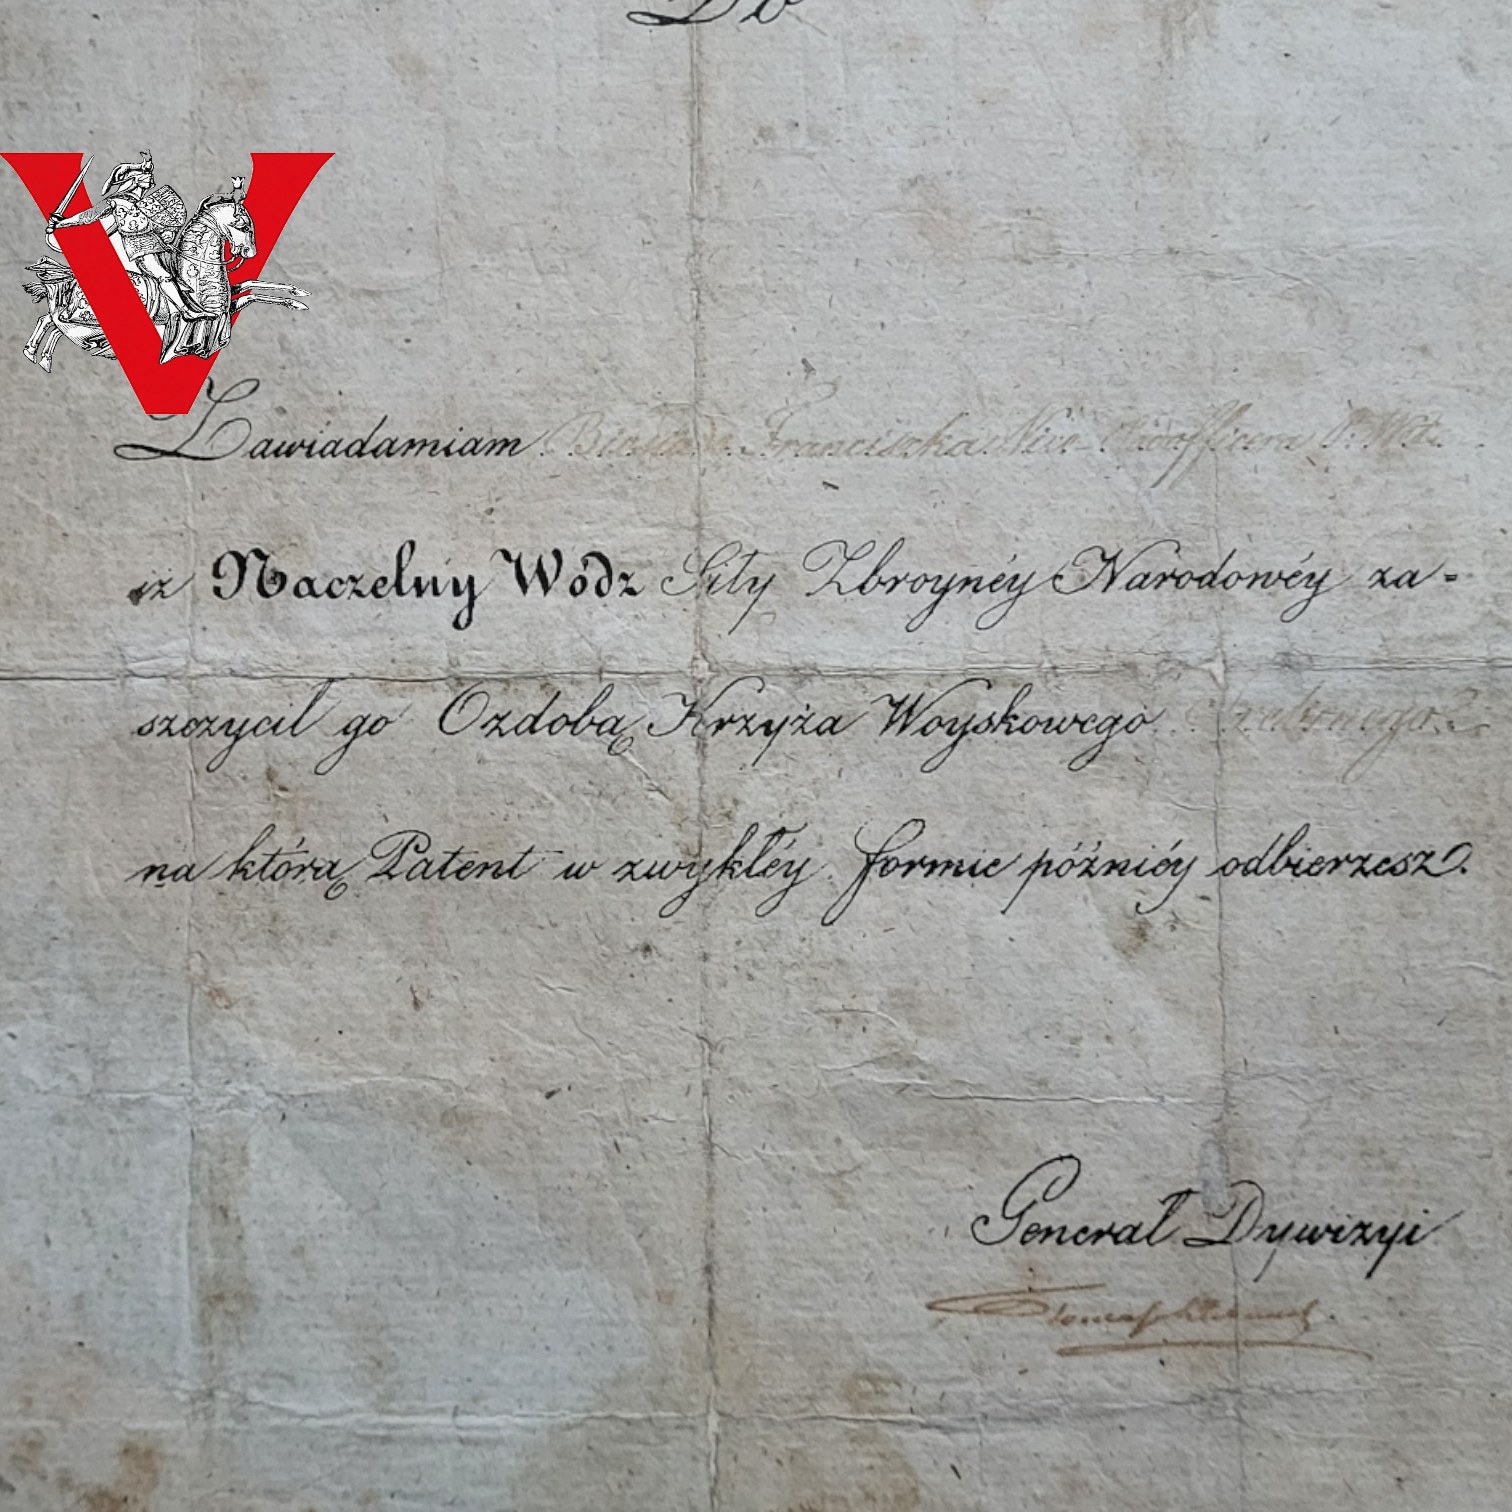 Do
V
Zawiadamiam Franciszka Vice-
iż Naczelny Wódz Siły Zbroynéy Narodowéy za-
szczycił go Ozdobą Krzyża Woyskowego Srebrnego
na którą Patent w zwykłéy formie późniéy odbierzesz.
Generał Dywizyi